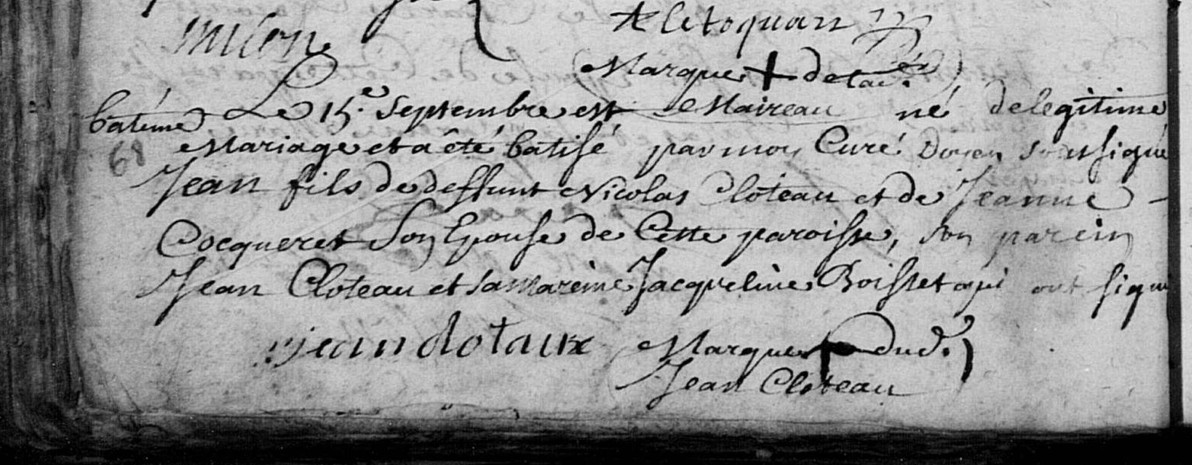 milon
Marque + de lad.
batême Le 15e Septembre est né de legitime
Mariage et a été batisé par moy Curé Doyen soussigné
Jean fils de deffunt Nicolas Cloteau et de Jeanne
Cocqueret Son Epouse de Cette paroisse, son parein
Jean Cloteau et sa mareine Jacqueline Boisset qui ont signé
68
jean dotaux Marque + dud.
Jean Cloteau